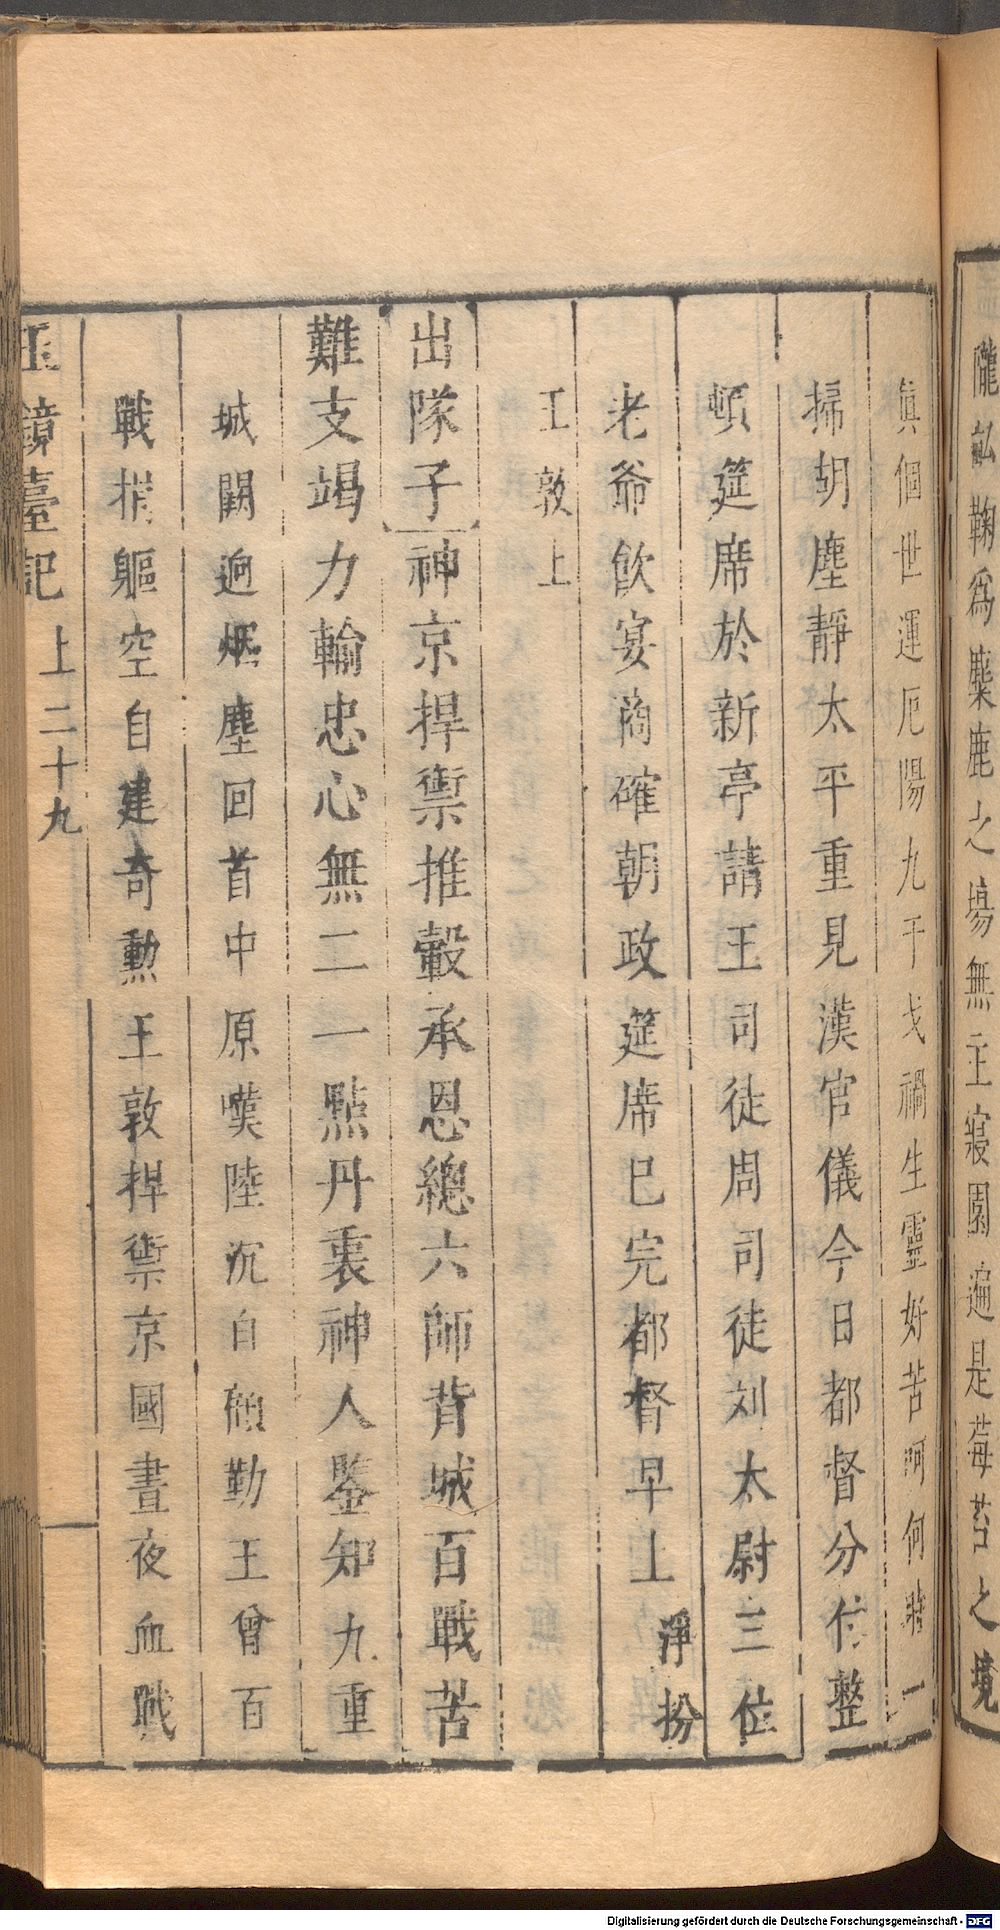 隴畝鞠爲麋鹿之場無主寢園遍是莓苔之境
眞個世運厄陽九干戈禍生靈好苦呵何時一
掃胡塵靜太平重見漢官儀今日都督分付整
頓筵席於新亭請王司徒周司徒刘太尉三位
老爺飲宴商確朝政筵席已完都督早上淨扮
王敦上
出隊子神京捍禦推轂承恩總六師背城百戰苦
難支竭力輸忠心無二一點丹衷神人鑒知九重
城闕逈烟塵回首中原嘆陸沉自領勤王曾百
戰捐軀空自建奇勳王敦捍禦京國晝夜血戰
玉鏡臺記 上二十九
Digitalisierung gefördert durch die Deutsche Forschungsgemeinschaft - DFG